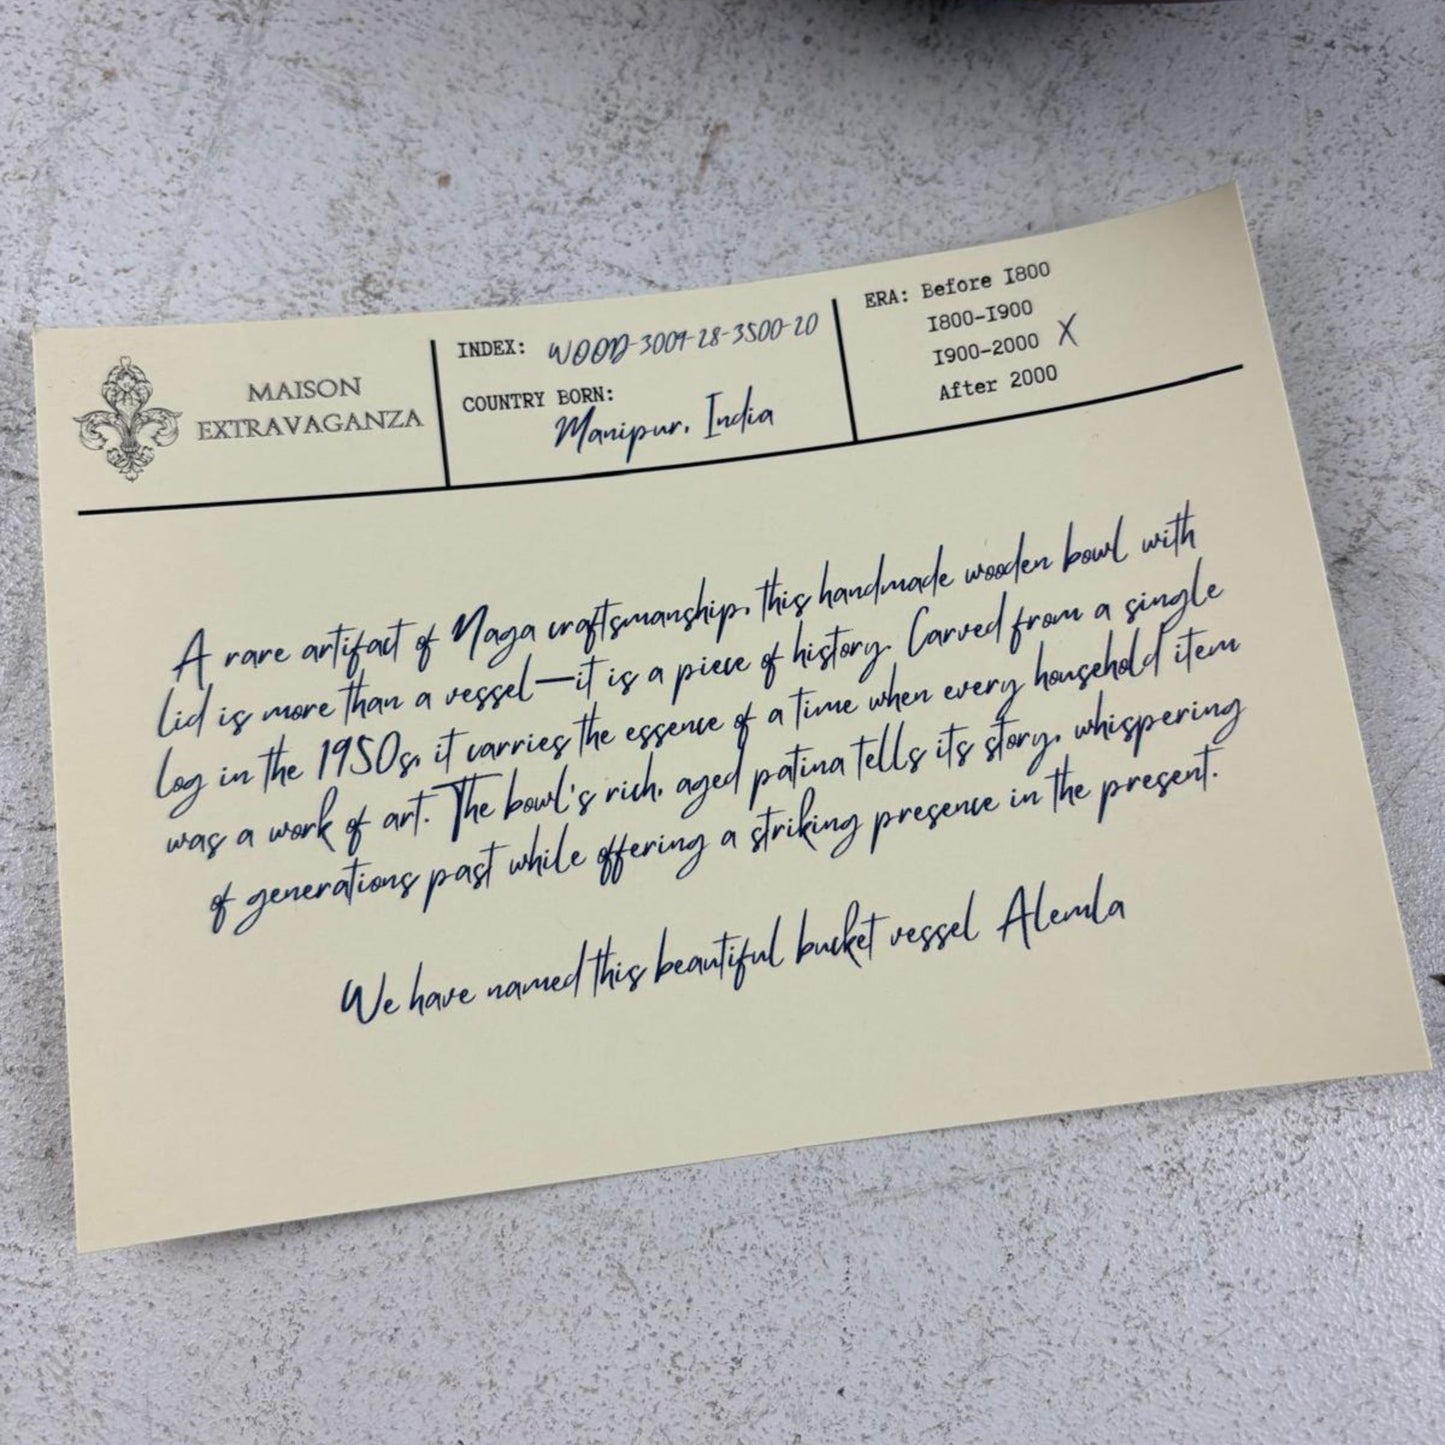 MAISON
EXTRAVAGANZA
INDEX: WOOD-3009-28-3500-20
COUNTRY BORN:
Manipur, India
ERA: Before 1800
1800-1900
1900-2000 X
After 2000
A rare artifact of Naga craftsmanship, this handmade wooden bowl with
lid is more than a vessel—it is a piece of history. Carved from a single
log in the 1950s, it carries the essence of a time when every household item
was a work of art. The bowl's rich, aged patina tells its story, whispering
of generations past while offering a striking presence in the present.
We have named this beautiful bucket vessel Alemla